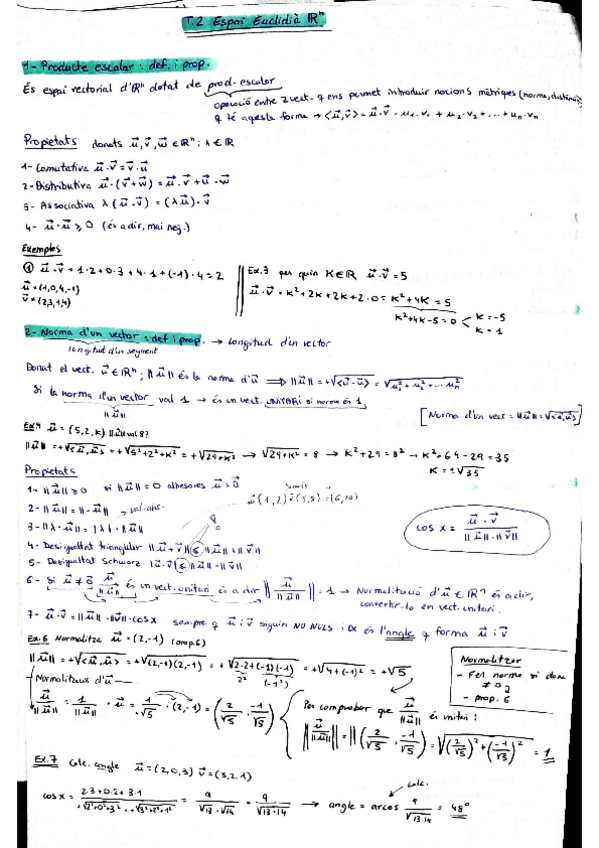 T.2 Espai Euclidià ℝⁿ
1- Producte escalar: def. i prop.
És espai vectorial d'ℝⁿ dotat de prod. escalar
operació entre 2 vect. q ens permet introduir nocions mètriques (norma, distància)
q té aquesta forma → <u⃗,v⃗> = u⃗·v⃗ = u₁·v₁ + u₂·v₂ + ... + uₙ·vₙ
Propietats donats u⃗, v⃗, w⃗ ∈ ℝⁿ i λ ∈ ℝ
1- Comutativa u⃗·v⃗ = v⃗·u⃗
2- Distributiva u⃗·(v⃗+w⃗) = u⃗·v⃗ + u⃗·w⃗
3- Associativa λ(u⃗·v⃗) = (λu⃗)·v⃗
4- u⃗·u⃗ ≥ 0 (és a dir, mai neg.)
Exemples
① u⃗·v⃗ = 1·2 + 0·3 + 4·1 + (-1)·4 = 2
u⃗ = (1,0,4,-1)
v⃗ = (2,3,1,4)
Ex.3 per quin K∈ℝ u⃗·v⃗ = 5
u⃗·v⃗ = K²+2K+2K+2·0 = K²+4K = 5
K²+4K-5=0 < K=-5
K=1
2- Norma d'un vector: def i prop. → longitud d'un vector
longitud d'un segment
Donat el vect. u⃗ ∈ ℝⁿ; ||u⃗|| és la norma d'u⃗ ⟹ ||u⃗|| = +√<u⃗·u⃗> = √u₁²+u₂²+...uₙ²
Si la norma d'un vector val 1 → és un vect. UNITARI si norma és 1
||u⃗||
[Norma d'un vect = ||u⃗|| = √<u⃗,u⃗>]
Ex.4 u⃗ = (5,2,K) ||u⃗|| val 8?
||u⃗|| = +√<u⃗,u⃗> = +√5²+2²+K² = +√29+K² → √29+K² = 8 → K²+29=8² → K²=64-29=35
K=±√35
Propietats
1- ||u⃗|| ≥ 0 si ||u⃗|| = 0 aleshores u⃗ = 0⃗
2- ||u⃗|| = ||-u⃗|| → val. abs.
3- ||λ·u⃗|| = |λ|·||u⃗||
cos x = u⃗·v⃗ / ||u⃗||·||v⃗||
4- Desigualtat triangular ||u⃗+v⃗|| ≤ ||u⃗||+||v⃗||
5- Desigualtat Schwarz |u⃗·v⃗| ≤ ||u⃗||·||v⃗||
6- Si u⃗ ≠ 0⃗ u⃗/||u⃗|| és un vect. unitari, és a dir ||u⃗/||u⃗|||| = 1 → Normalització d'u⃗ ∈ ℝⁿ és a dir,
convertir-lo en vect. unitari.
7- u⃗·v⃗ = ||u⃗||·||v⃗||·cos x sempre q u⃗ i v⃗ siguin NO NULS i α és l'angle q forma u⃗ i v⃗
Ex.6 Normalitza u⃗ = (2,-1) (prop.6)
||u⃗|| = +√<u⃗,u⃗> = +√(2,-1)(2,-1) = +√2·2+(-1)(-1) = +√4+(-1)² = +√5
2² (-1²)
Normalitzar
- Fer norma si dona ≠ 0
- prop. 6
- Normalitzem u⃗ -
u⃗/||u⃗|| = 1/||u⃗|| · u⃗ = 1/√5 · (2,-1) = (2/√5, -1/√5)
Per comprobar que u⃗/||u⃗|| és unitari:
||u⃗/||u⃗|||| = ||(2/√5, -1/√5)|| = √(2/√5)²+(-1/√5)² = 1
Ex.7 Calc. angle u⃗ = (2,0,3) v⃗ = (3,2,1)
calc.
cos x = 2·3+0·2+3·1 / +√2²+0²+3² · +√3²+2²+1² = 9/√13·√14 = 9/√13·14 → angle = arcos 9/√13·14 = 48°